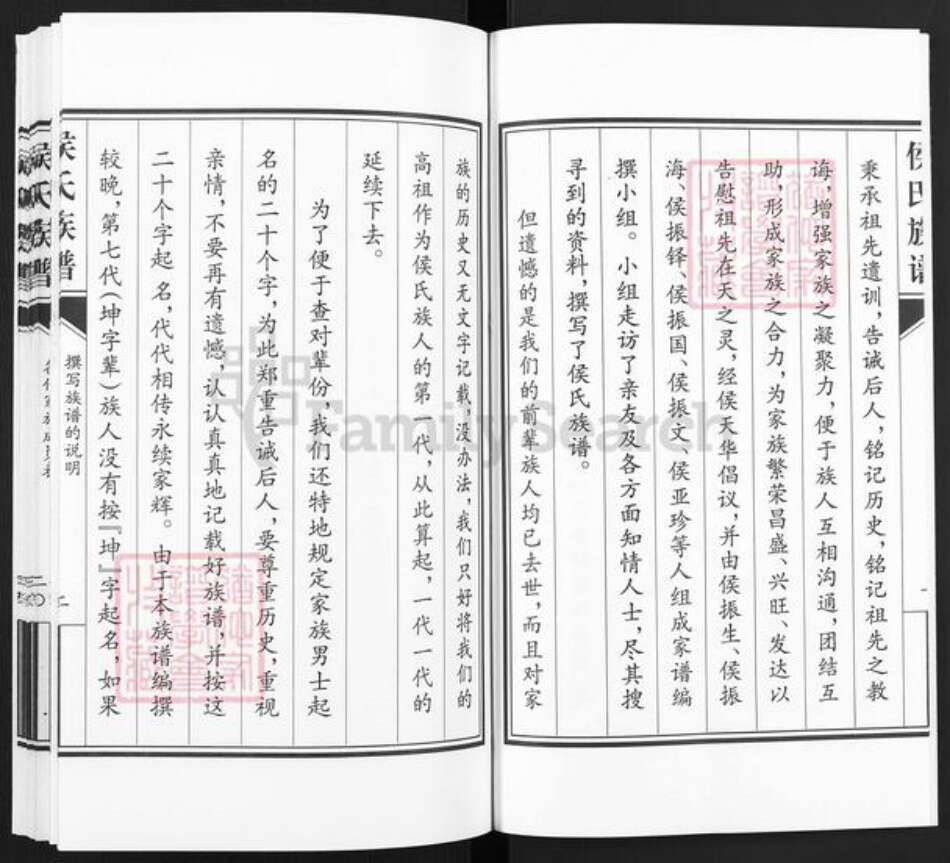 侯氏族谱
秉承祖先遗训,告诫后人,铭记历史,铭记祖先之教
诲,增强家族之凝聚力,便于族人互相沟通,团结互
助,形成家族之合力,为家族繁荣昌盛、兴旺、发达以
告慰祖先在天之灵,经侯天华倡议,并由侯振生、侯振
海、侯振铎、侯振国、侯振文、侯亚珍等人组成家谱编
撰小组。小组走访了亲友及各方面知情人士,尽其搜
寻到的资料,撰写了侯氏族谱。
但遗憾的是我们的前辈族人均已去世,而且对家
族的历史又无文字记载,没办法,我们只好将我们的
高祖作为侯氏族人的第一代,从此算起,一代一代的
延续下去。
为了便于查对辈份,我们还特地规定家族男士起
名的二十个字,为此郑重告诫后人,要尊重历史,重视
亲情,不要再有遗憾,认认真真地记载好族谱,并按这
二十个字起 名,代代相传永续家辉。由于本族谱编撰
较晚,第七代(坤字辈)族人没有按『坤』字起名,如果
侯氏族谱
撰写族谱的说明
二
侯氏族谱
FamilySearch